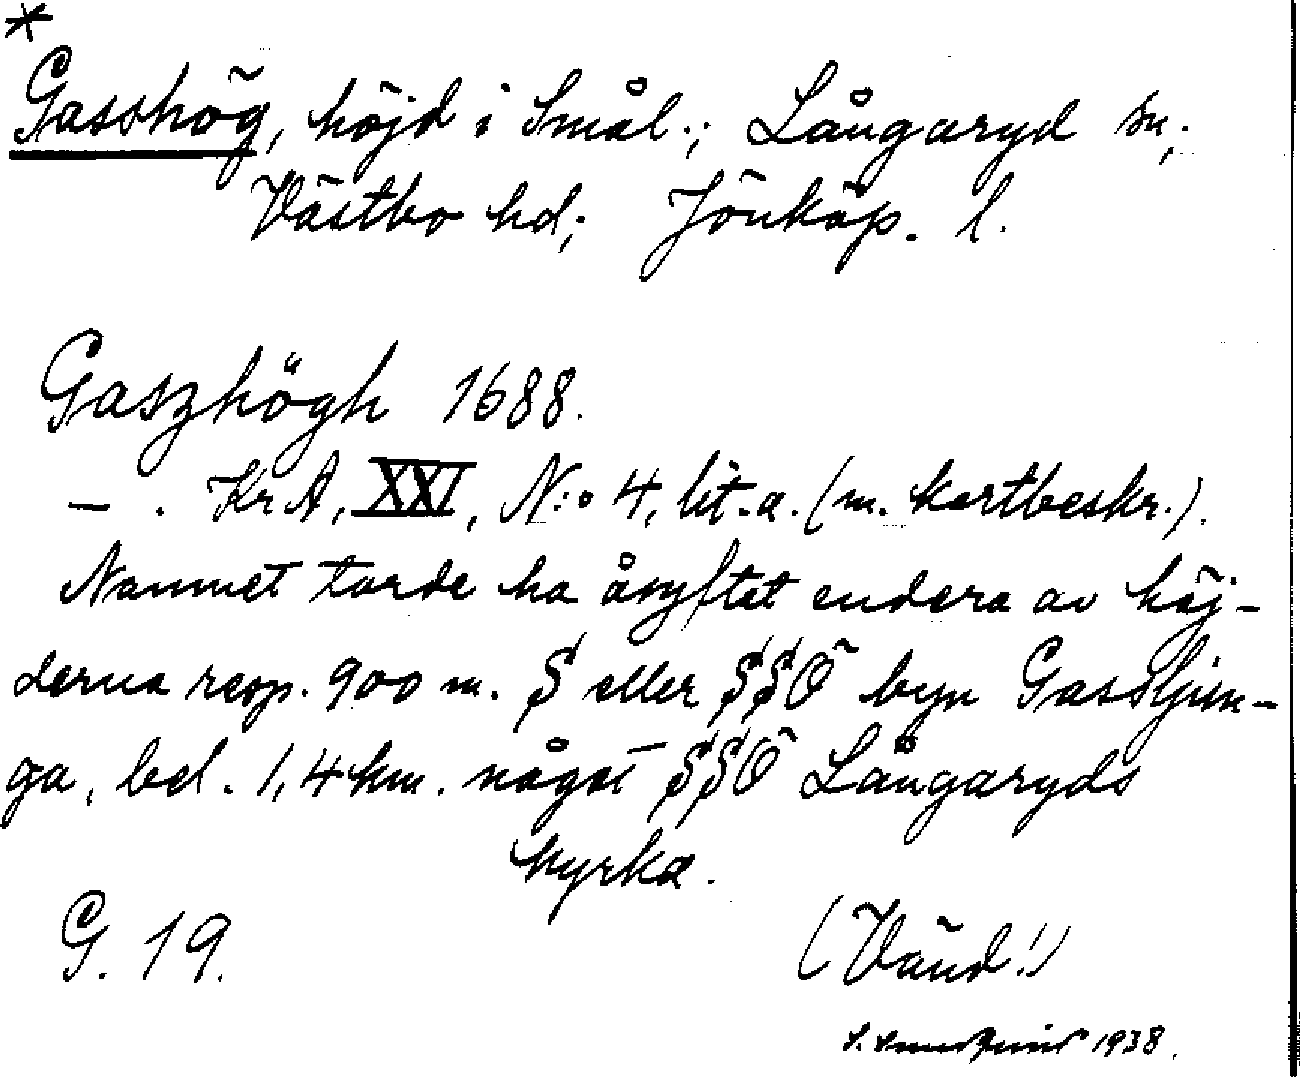 *
Gasshög, höjd i Smål.; Långaryd sn;
Västbo hd; Jönköp. l.
Gaszhögh 1688.
— . KrA, XXI, N:o 4, lit. a. (m. kartbeskr.).
Namnet torde ha åsyftat endera av höj-
derna resp. 900 m. S eller SSÖ byn Gassljun-
ga, bel. 1,4 km. något SSÖ Långaryds
kyrka.
G. 19.
(Vänd!)
1938.